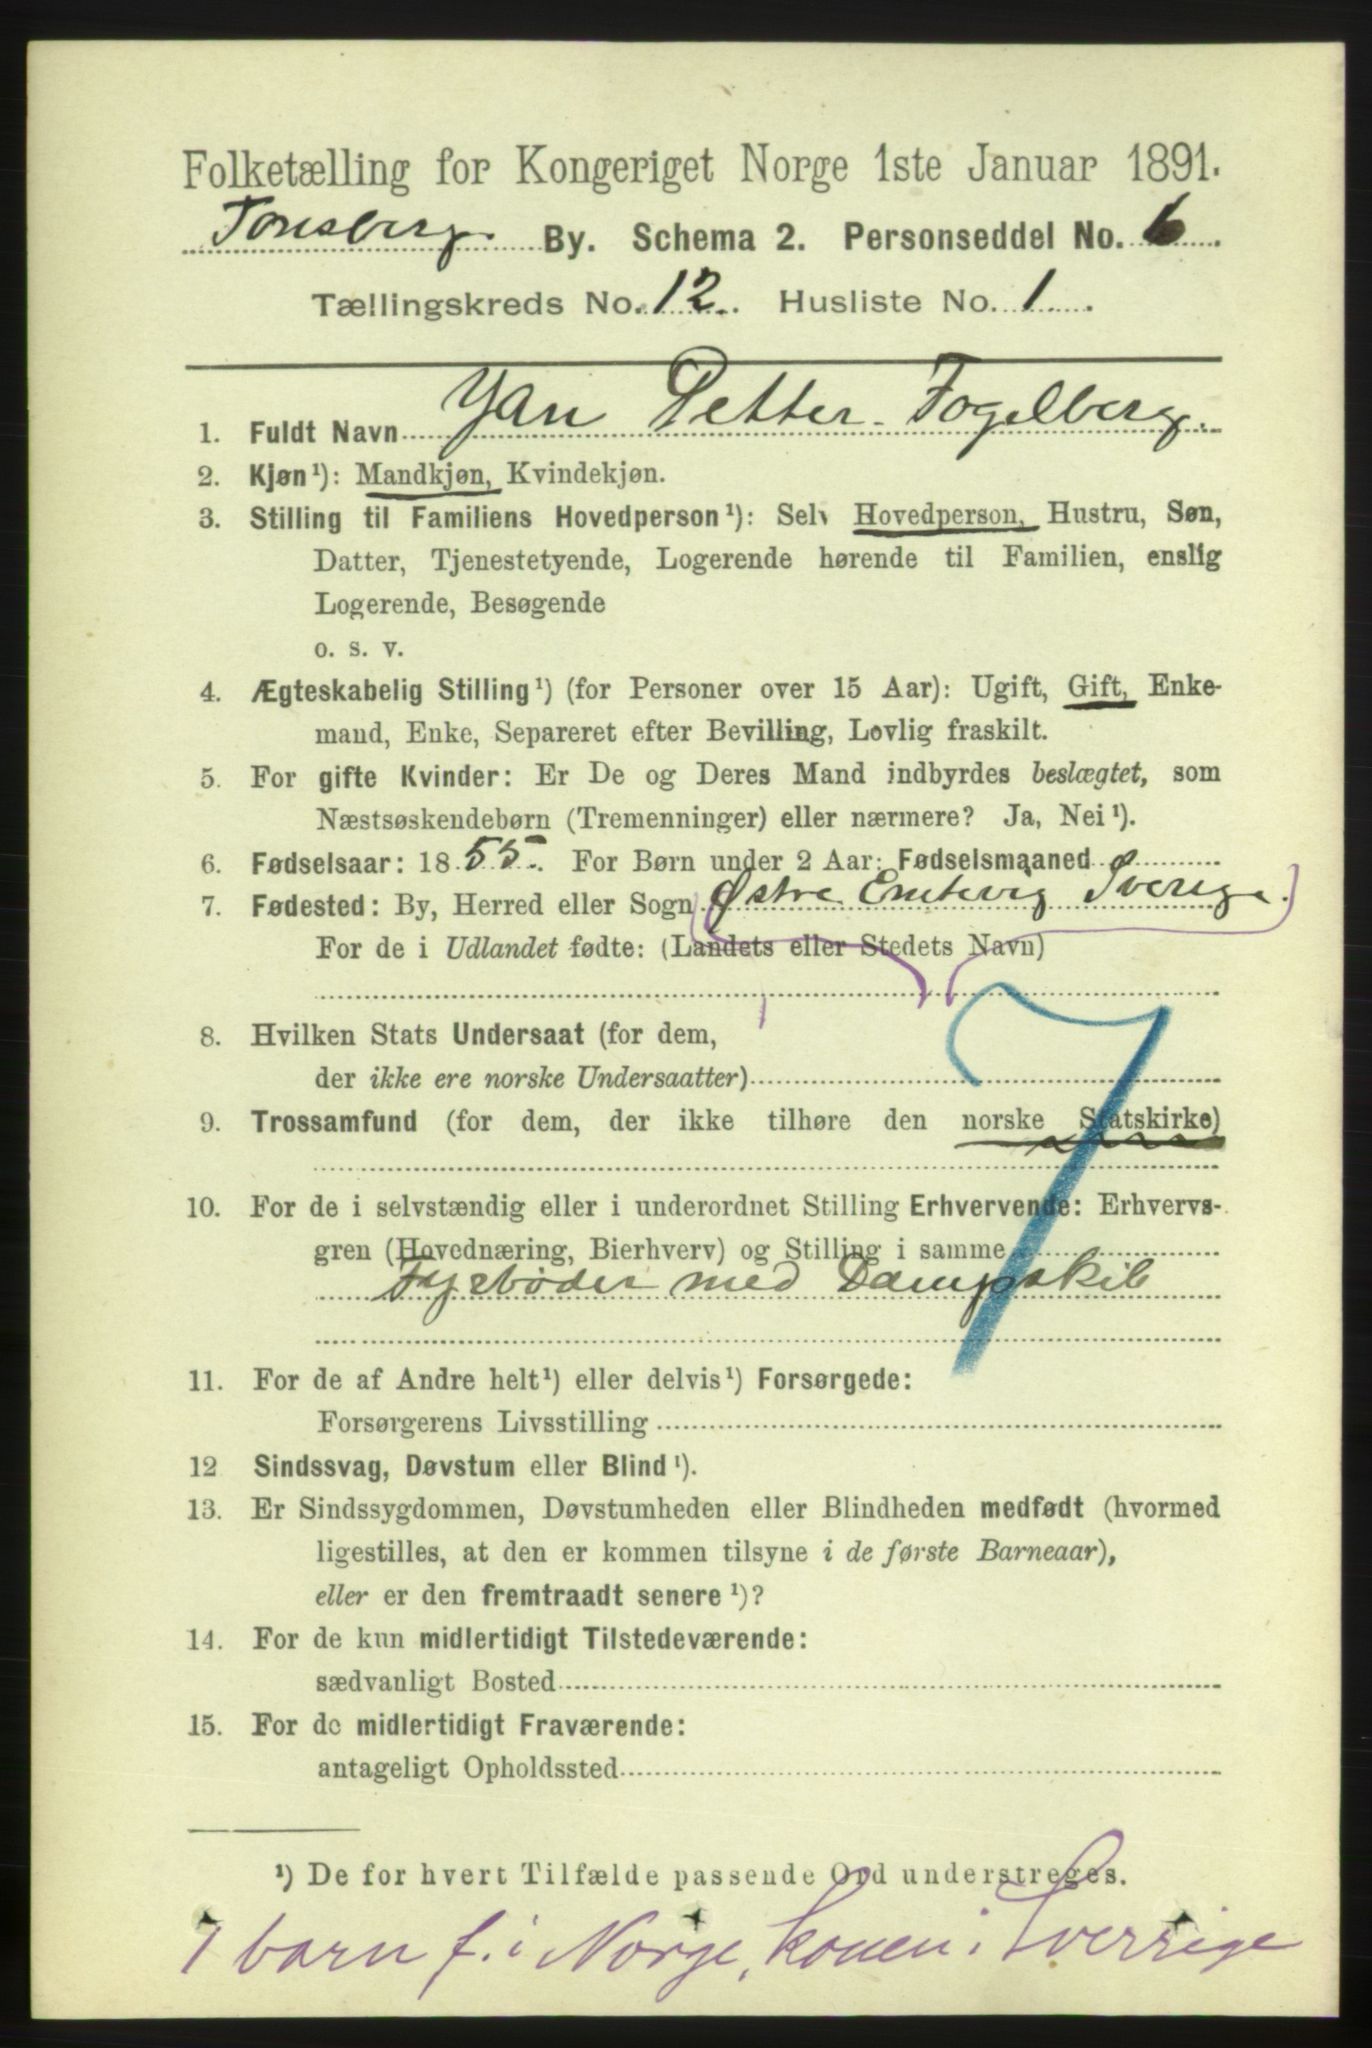 Folketælling for Kongeriget Norge 1ste Januar 1891.
Tønsberg. By. Schema 2. Personseddel No. 6
Tællingskreds No. 12. Husliste No. 1
1. Fuldt Navn Jan Petter Fogelberg.
2. Kjøn¹): Mandkjøn, Kvindekjøn.
3. Stilling til Familiens Hovedperson¹): Selv Hovedperson, Hustru, Søn,
Datter, Tjenestetyende, Logerende hørende til Familien, enslig
Logerende, Besøgende
o. s. v.
4. Ægteskabelig Stilling¹) (for Personer over 15 Aar): Ugift, Gift, Enke-
mand, Enke, Separeret efter Bevilling, Lovlig fraskilt.
5. For gifte Kvinder: Er De og Deres Mand indbyrdes beslægtet, som
Næstsøskendebørn (Tremenninger) eller nærmere? Ja, Nei¹).
6. Fødselsaar: 1855. For Børn under 2 Aar: Fødselsmaaned
7. Fødested: By, Herred eller Sogn Østre Emtervig Sverige.
For de i Udlandet fødte: (Landets eller Stedets Navn)
8. Hvilken Stats Undersaat (for dem,
der ikke ere norske Undersaatter)
7
9. Trossamfund (for dem, der ikke tilhøre den norske Statskirke)
10. For de i selvstændig eller i underordnet Stilling Erhvervende: Erhvervs-
gren (Hovednæring, Bierhverv) og Stilling i samme
Fyrbøder med Dampskib
11. For de af Andre helt¹) eller delvis¹) Forsørgede:
Forsørgerens Livsstilling
12 Sindssvag, Døvstum eller Blind¹).
13. Er Sindssygdommen, Døvstumheden eller Blindheden medfødt (hvormed
ligestilles, at den er kommen tilsyne i de første Barneaar),
eller er den fremtraadt senere¹)?
14. For de kun midlertidigt Tilstedeværende:
sædvanligt Bosted
15. For de midlertidigt Fraværende:
antageligt Opholdssted
¹) De for hvert Tilfælde passende Ord understreges.
7 barn f. i Norge, konen i Sverrige